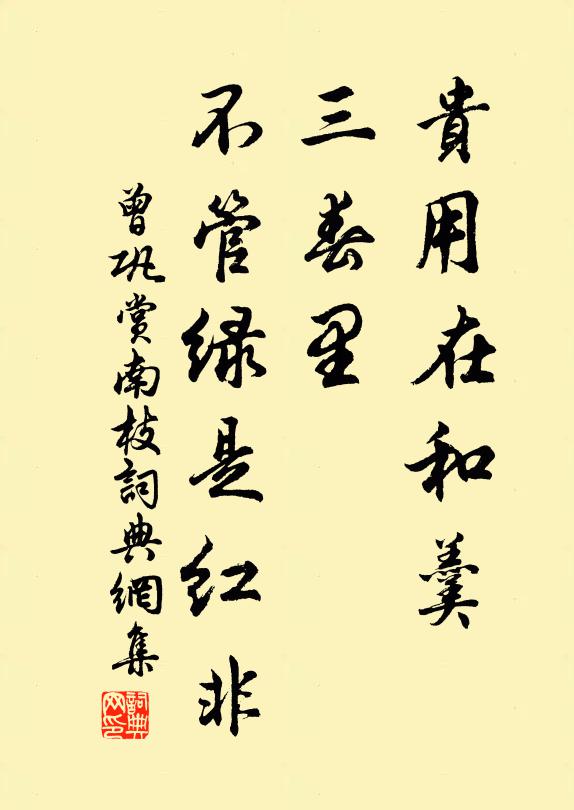 貴用在和羹
三春里
不管綠是紅非
曾巩賞南枝詞典網集
詞典网印